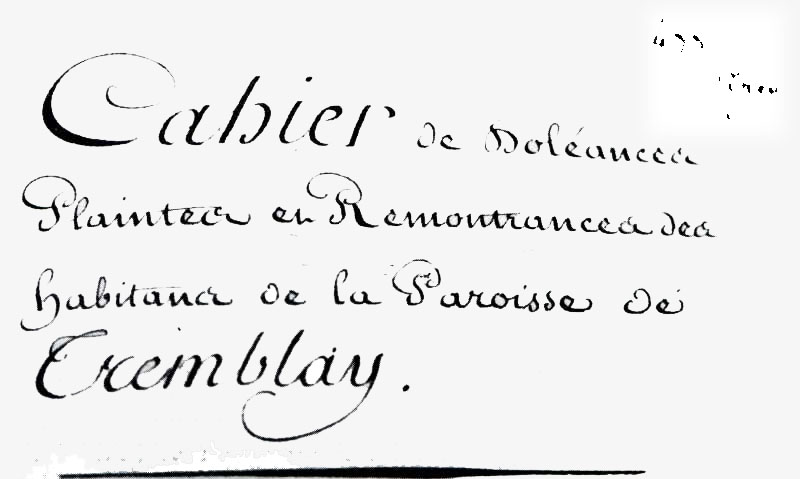 Cahier de Doléances
Plaintes et Remontrances des
habitans de la Paroisse de
Tremblay.